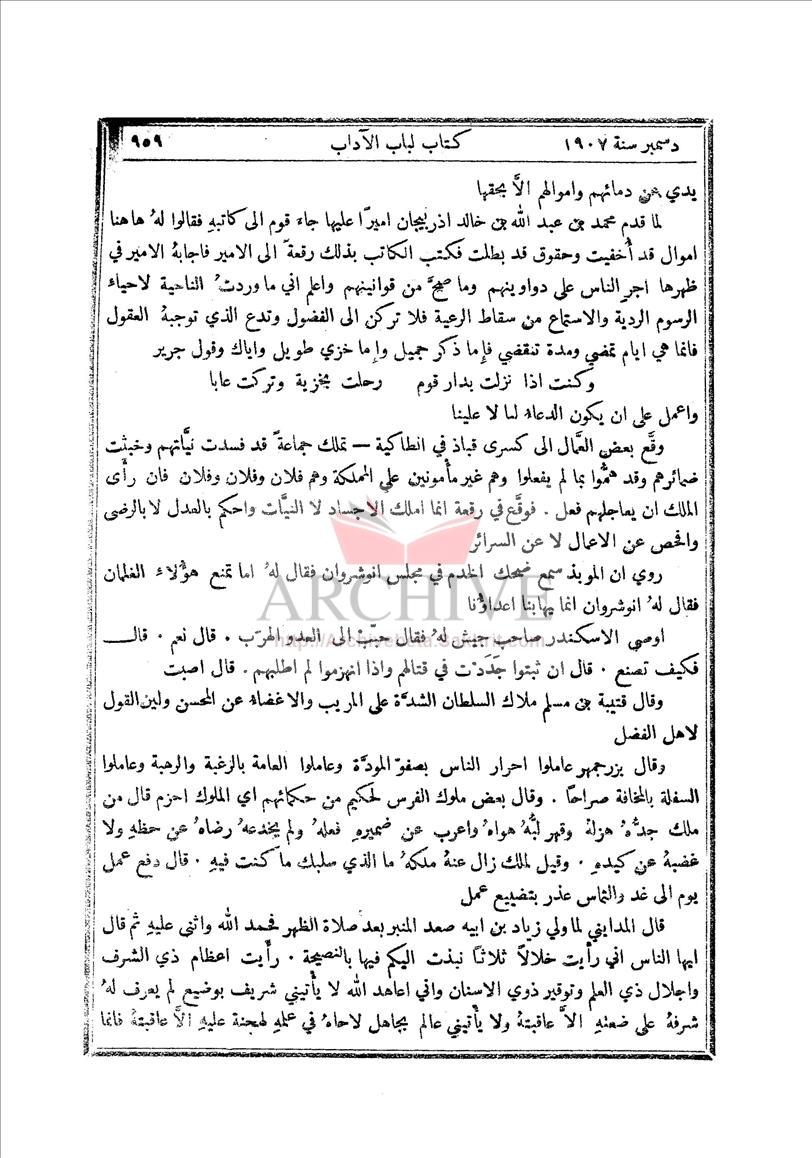 دسمبر سنة ١٩٠٧
كتاب لباب الآداب
٩٥٩
يدي عن دمائهم واموالهم الاَّ بحقها
لما قدم محمد بن عبد الله بن خالد اذربيجان اميرًا عليها جاءَ قوم الى كاتبهِ فقالوا لهُ هاهنا
اموال قد أُخفيت وحقوق قد بطلت فكتب الكاتب بذلك رقعةً الى الامير فاجابهُ الامير في
ظهرها اجرِ الناس على دواوينهم وما صحَّ من قوانينهم واعلم اني ما وردتُ الناحية لاحياء
الرسوم الردية والاستماع من سقاط الرعية فلا تركن الى الفضول وتدع الذي توجبهُ العقول
فانما هي ايام تمضي ومدة تنقضي فإما ذكر جميل وإما خزي طويل واياك وقول جرير
وكنت اذا نزلت بدار قوم رحلت بمخزية وتركت عابا
واعمل على ان يكون الدعاءُ لنا لا علينا
وقَّع بعض العمَّال الى كسرى قباذ في انطاكية — تملك جماعةً قد فسدت نيَّاتهم وخبثت
ضمائرهم وقد همُّوا بما لم يفعلوا وهم غير مأمونين على المملكة وهم فلان وفلان وفلان فان رأى
الملك ان يعاجلهم فعل . فوقَّع في رقعة انما املك الاجساد لا النيَّات واحكم بالعدل لا بالرضى
وافحص عن الاعمال لا عن السرائر
روي ان الموبذ سمع ضحك الخدم في مجلس انوشروان فقال لهُ اما تمنع هؤلاء الغلمان
فقال لهُ انوشروان انما يهابنا اعداؤنا
ARCHIVE
http://Archivebeta.Sakhrit.com
اوصى الاسكندر صاحب جيش لهُ فقال حبّب الى العدو الهرَب . قال نعم . قال
فكيف تصنع . قال ان ثبتوا جَدَدْت في قتالهم واذا انهزموا لم اطلبهم . قال اصبت
وقال قتيبة بن مسلم ملاك السلطان الشدَّة على المريب والاغضاءُ عن المحسن ولين القول
لاهل الفضل
وقال بزرجمهر عاملوا احرار الناس بصفوّ المودَّة وعاملوا العامة بالرغبة والرهبة وعاملوا
السفلة بالمخافة صراحًا . وقال بعض ملوك الفرس لحكيم من حكمائهم اي الملوك احزم قال من
ملك جدُّهُ هزلهُ وقهر لبُّهُ هواهُ واعرب عن ضميرهِ فعلهُ ولم يخدعهُ رضاهُ عن حظهِ ولا
غضبهُ عن كيدهِ . وقيل لملك زال عنهُ ملكهُ ما الذي سلبك ما كنت فيهِ . قال دفع عمل
يوم الى غد والتماس عذر بتضييع عمل
قال المدايني لما ولي زياد بن ابيه صعد المنبر بعد صلاة الظهر فحمد الله واثنى عليهِ ثم قال
ايها الناس اني رأيت خلالاً ثلاثًا نبذت اليكم فيها بالنصيحة . رأيت اعظام ذي الشرف
واجلال ذي العلم وتوقير ذوي الاسنان واني اعاهد الله لا يأتيني شريف بوضيع لم يعرف لهُ
شرفهُ على ضعتهِ الاَّ عاقبتهُ ولا يأتيني عالم بجاهل لاحاهُ في علمهِ لهجنة عليهِ الاَّ عاقبتهُ فانما